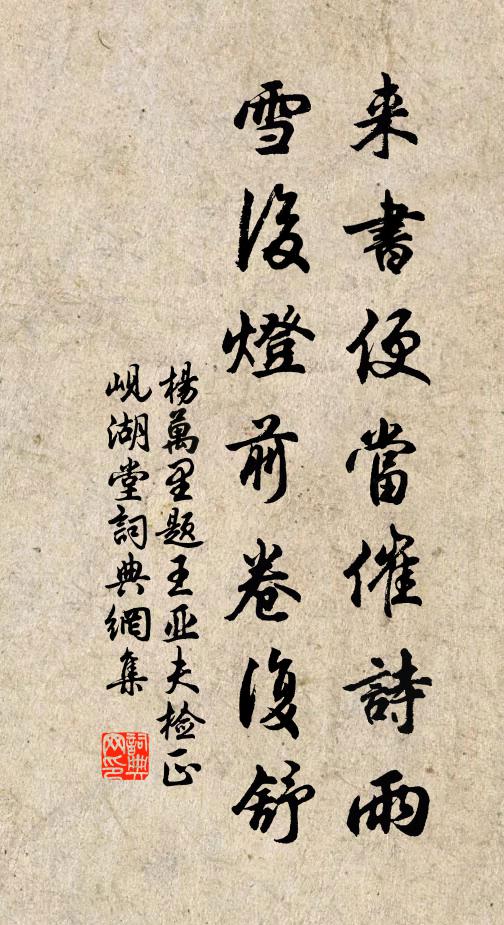 来書便當催詩雨
雪後燈前卷復舒
楊萬里題王亚夫检正
峴湖堂詞典網集
詞典網印